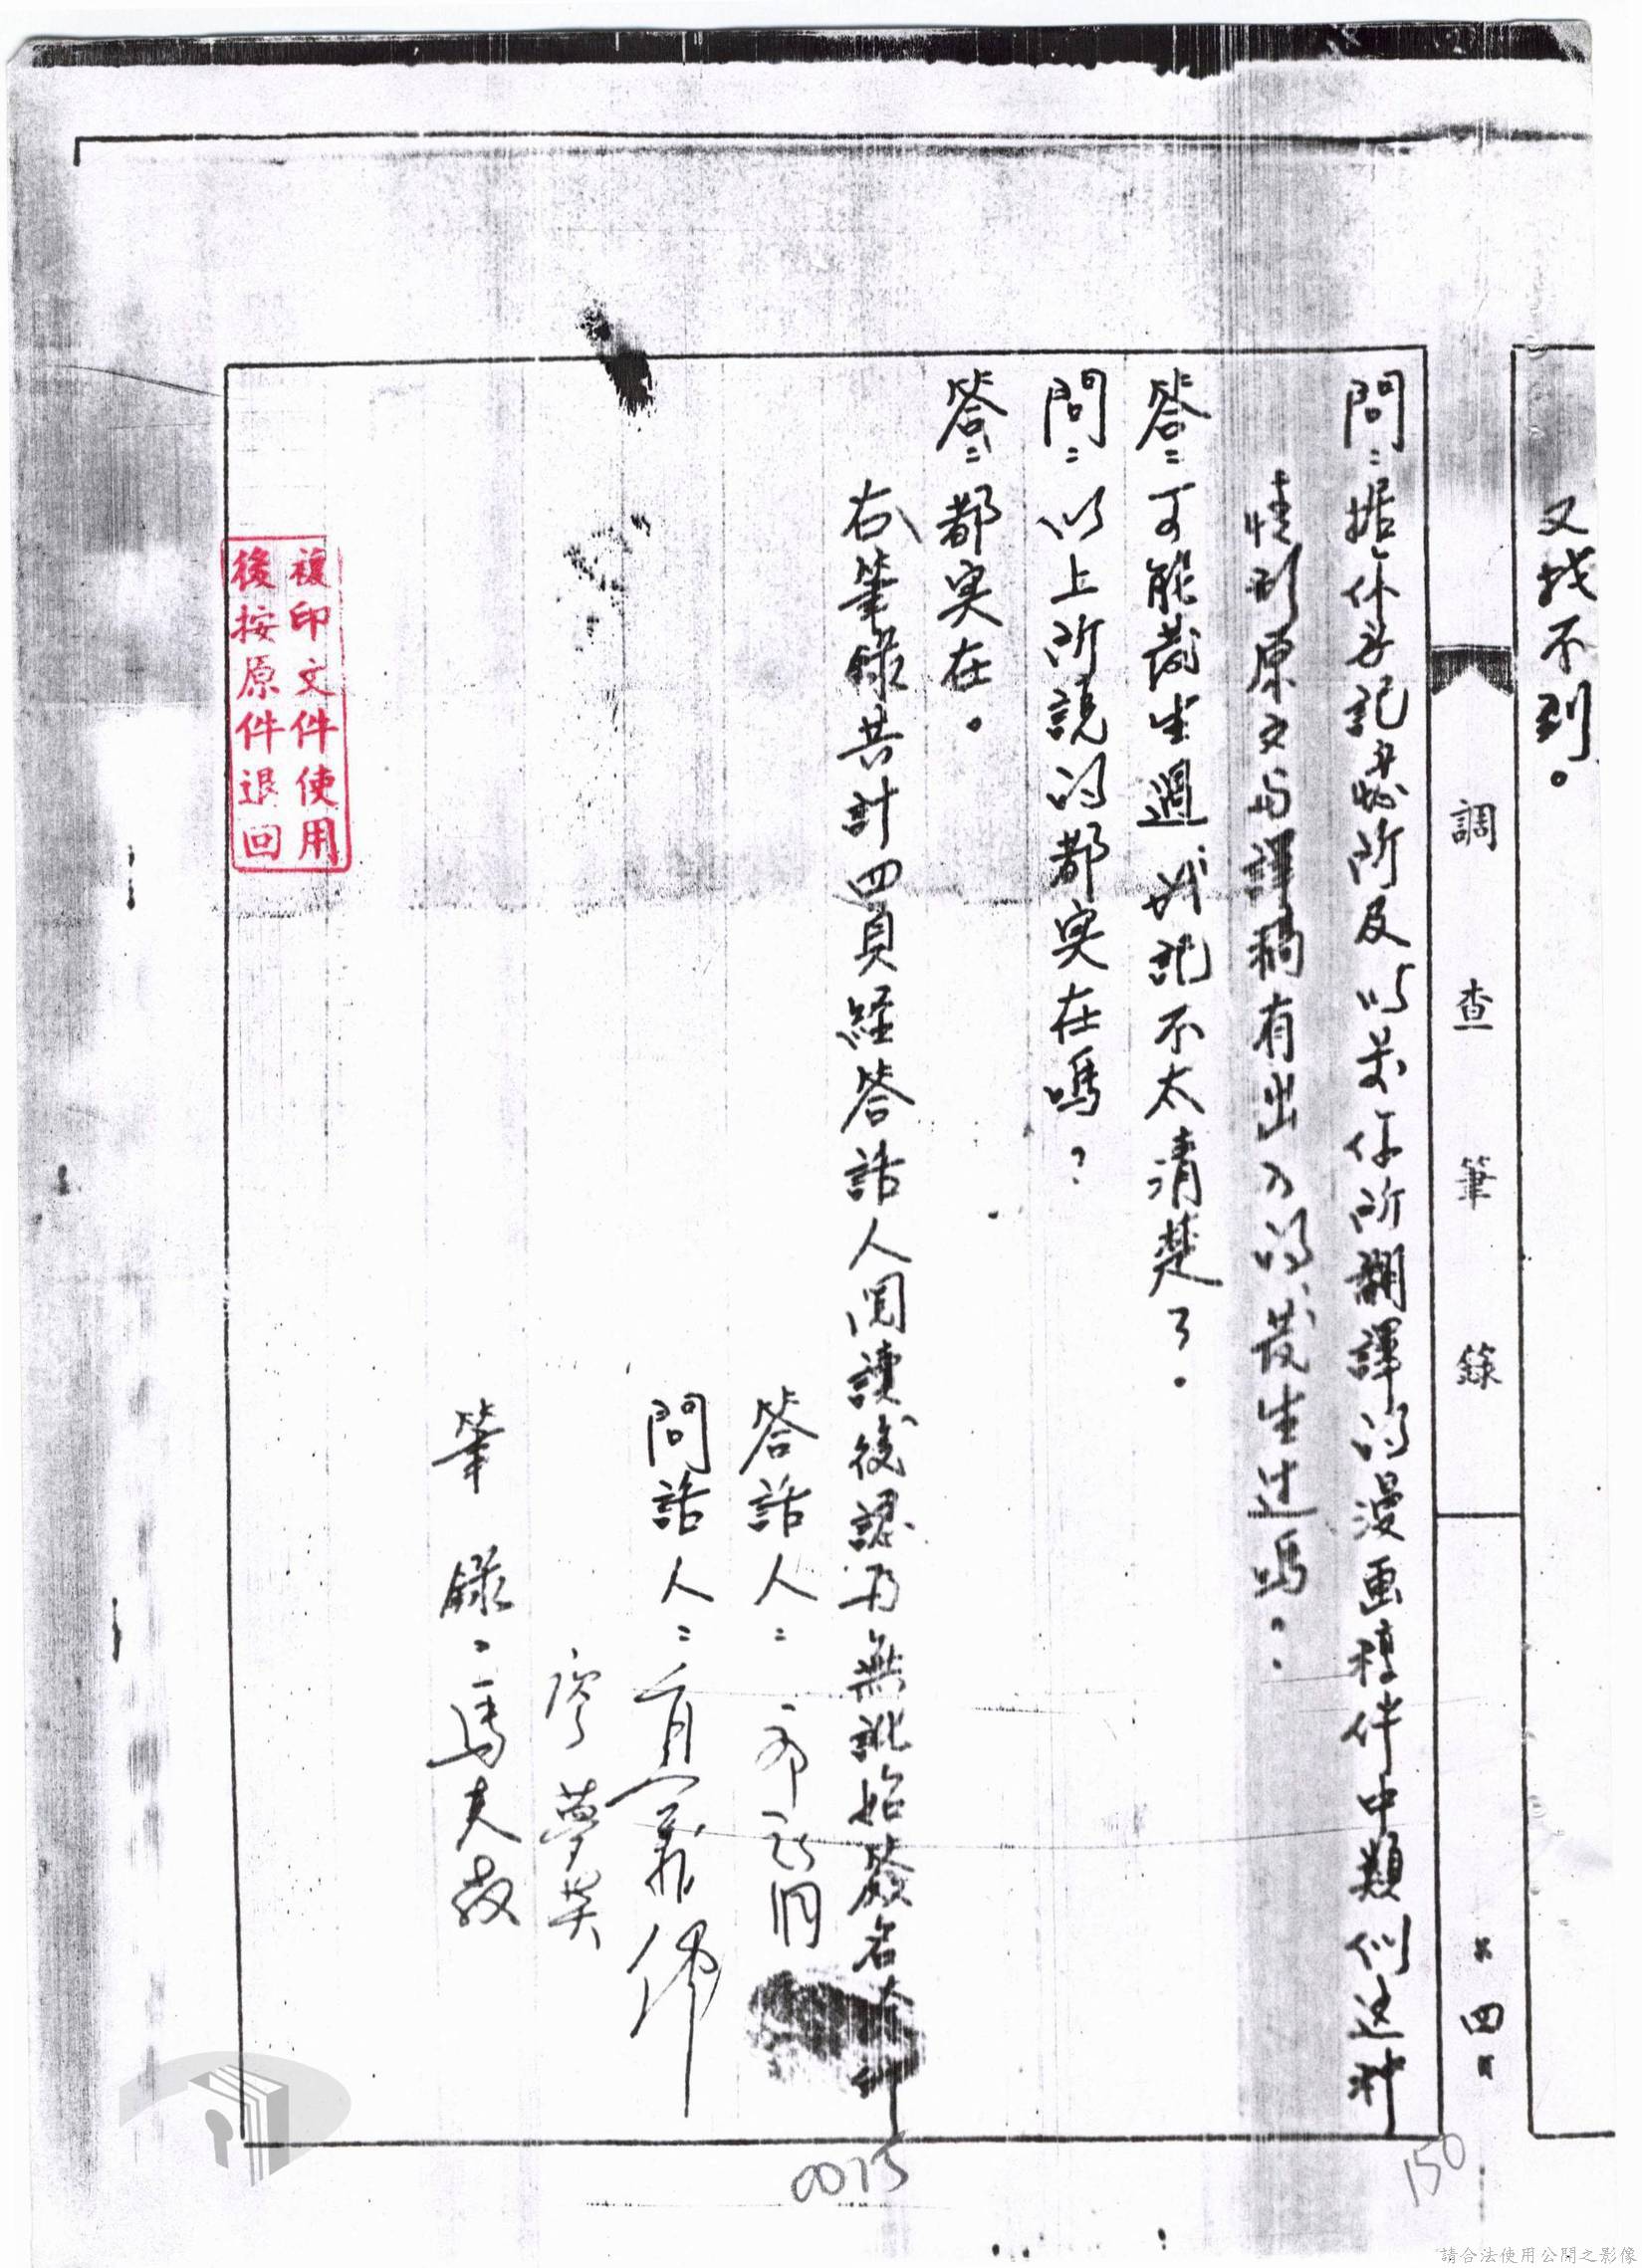 又找不到。
調查筆錄
第四頁
問：据你的記憶所及以前你所翻譯的漫画稿件中類似這種
情形原文与譯稿有出入的發生过嗎？
答：可能發生過我記不太清楚了。
問：以上所說的都実在嗎？
答：都実在。
右筆錄共計四頁経答話人閱讀後認為無訛始簽名捺印
答話人：
問話人：
筆錄：
複印文件使用
後按原件退回
0075
150
請合法使用公開之影像